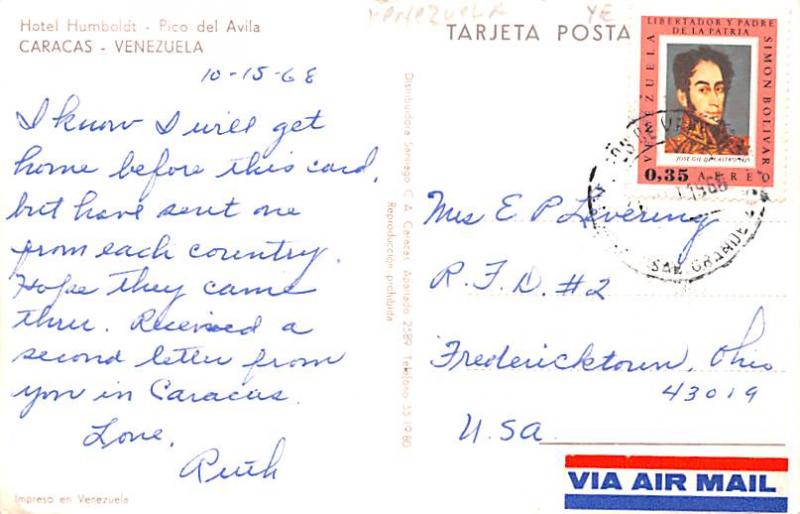 Hotel Humboldt - Pico del Avila
CARACAS - VENEZUELA
10-15-68
I know I will get
home before this card,
but have sent one
from each country.
Hope they came
thru. Received a
second letter from
you in Caracas.
Love,
Ruth
Impreso en Venezuela
Distribuidora Santiago C. A. Caracas. Apartado 2589. Telefono 55.19.80
Reproducción prohibida
Venezuela
YE
TARJETA POSTA
LIBERTADOR Y PADRE
DE LA PATRIA
VENEZUELA
SIMON BOLIVAR
JOSE GIL DE CASTRO
0,35 AEREO
1968
GRANDE
Mrs E P Levering
R.F.D. #2
Fredericktown, Ohio
43019
U.S.A.
VIA AIR MAIL